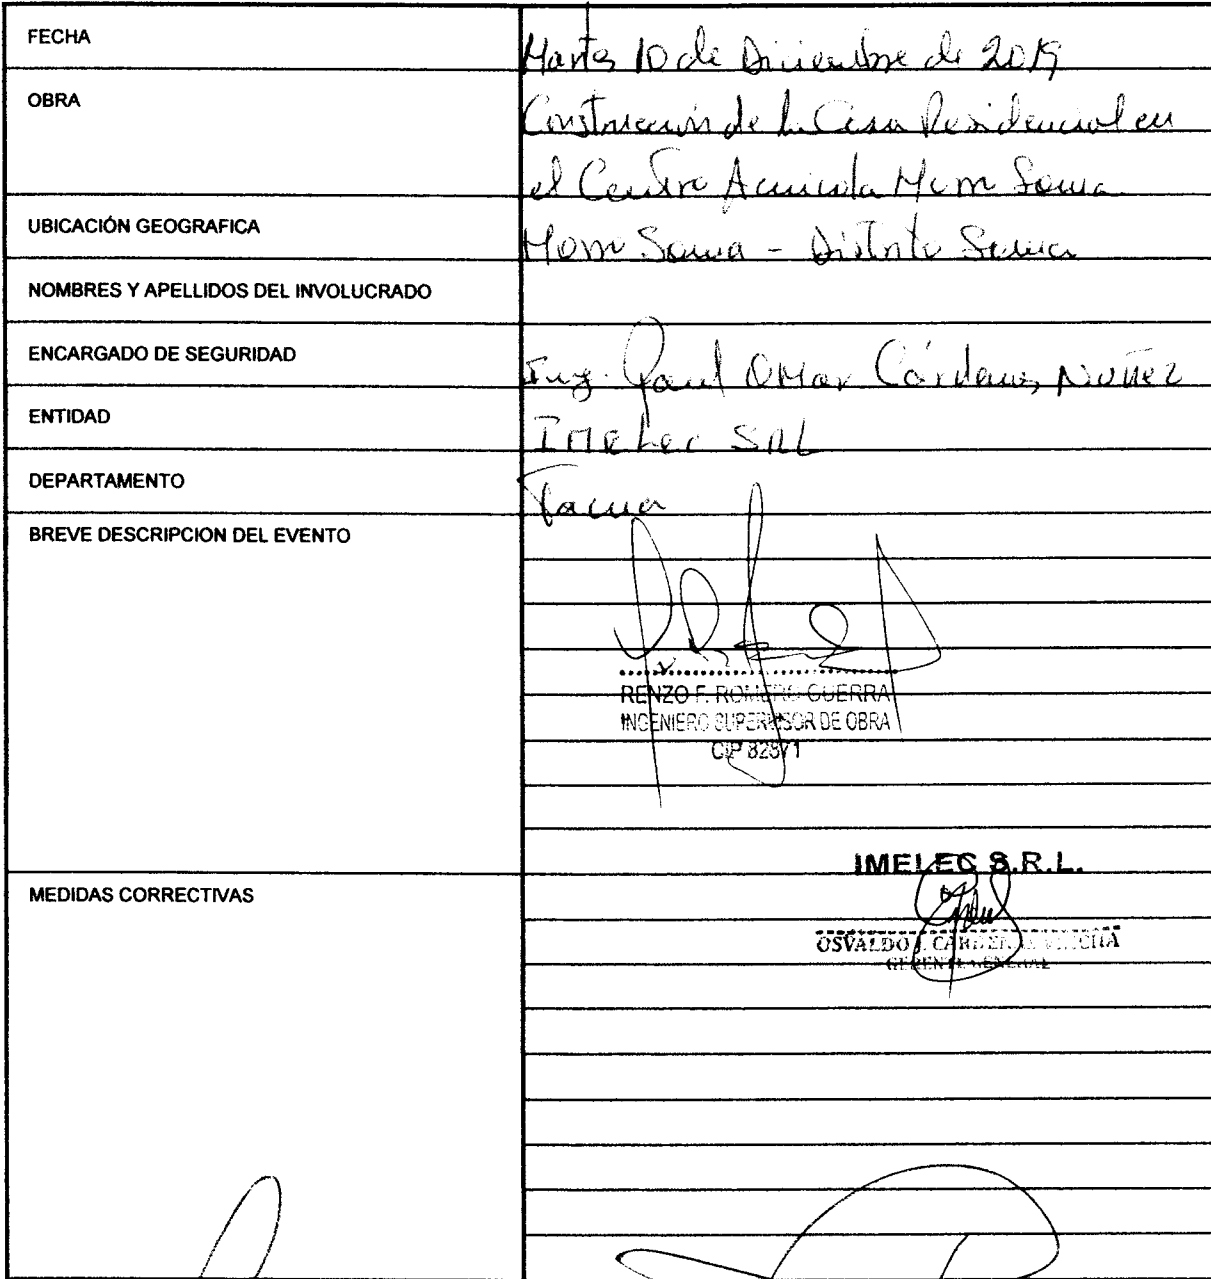 FECHA
Martes 10 de Diciembre de 2019
OBRA
Construcción de la Casa Residencial en
el Centro Acuicola Morro Sama
UBICACIÓN GEOGRAFICA
Morro Sama - Distrito Sama
NOMBRES Y APELLIDOS DEL INVOLUCRADO
ENCARGADO DE SEGURIDAD
Ing. Omar Cárdenas Nuñez
ENTIDAD
Imelec SRL
DEPARTAMENTO
Tacna
BREVE DESCRIPCION DEL EVENTO
RENZO F. ROMERO GUERRA
INGENIERO SUPERVISOR DE OBRA
CIP 82871
IMELEC S.R.L.
MEDIDAS CORRECTIVAS
OSVALDO J. CARDENAS
GERENTE GENERAL